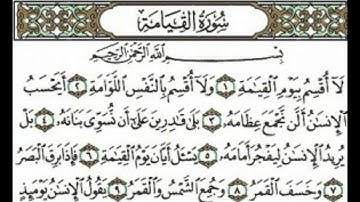 سُورَةُ القِيَامَةِ
بِسْمِ ٱللَّهِ ٱلرَّحْمَٰنِ ٱلرَّحِيمِ
لَآ أُقْسِمُ بِيَوْمِ ٱلْقِيَٰمَةِ ١ وَلَآ أُقْسِمُ بِٱلنَّفْسِ ٱللَّوَّامَةِ ٢ أَيَحْسَبُ
ٱلْإِنسَٰنُ أَلَّن نَّجْمَعَ عِظَامَهُۥ ٣ بَلَىٰ قَٰدِرِينَ عَلَىٰٓ أَن نُّسَوِّىَ بَنَانَهُۥ ٤ بَلْ
يُرِيدُ ٱلْإِنسَٰنُ لِيَفْجُرَ أَمَامَهُۥ ٥ يَسْـَٔلُ أَيَّانَ يَوْمُ ٱلْقِيَٰمَةِ ٦ فَإِذَا بَرِقَ ٱلْبَصَرُ
٧ وَخَسَفَ ٱلْقَمَرُ ٨ وَجُمِعَ ٱلشَّمْسُ وَٱلْقَمَرُ ٩ يَقُولُ ٱلْإِنسَٰنُ يَوْمَئِذٍ